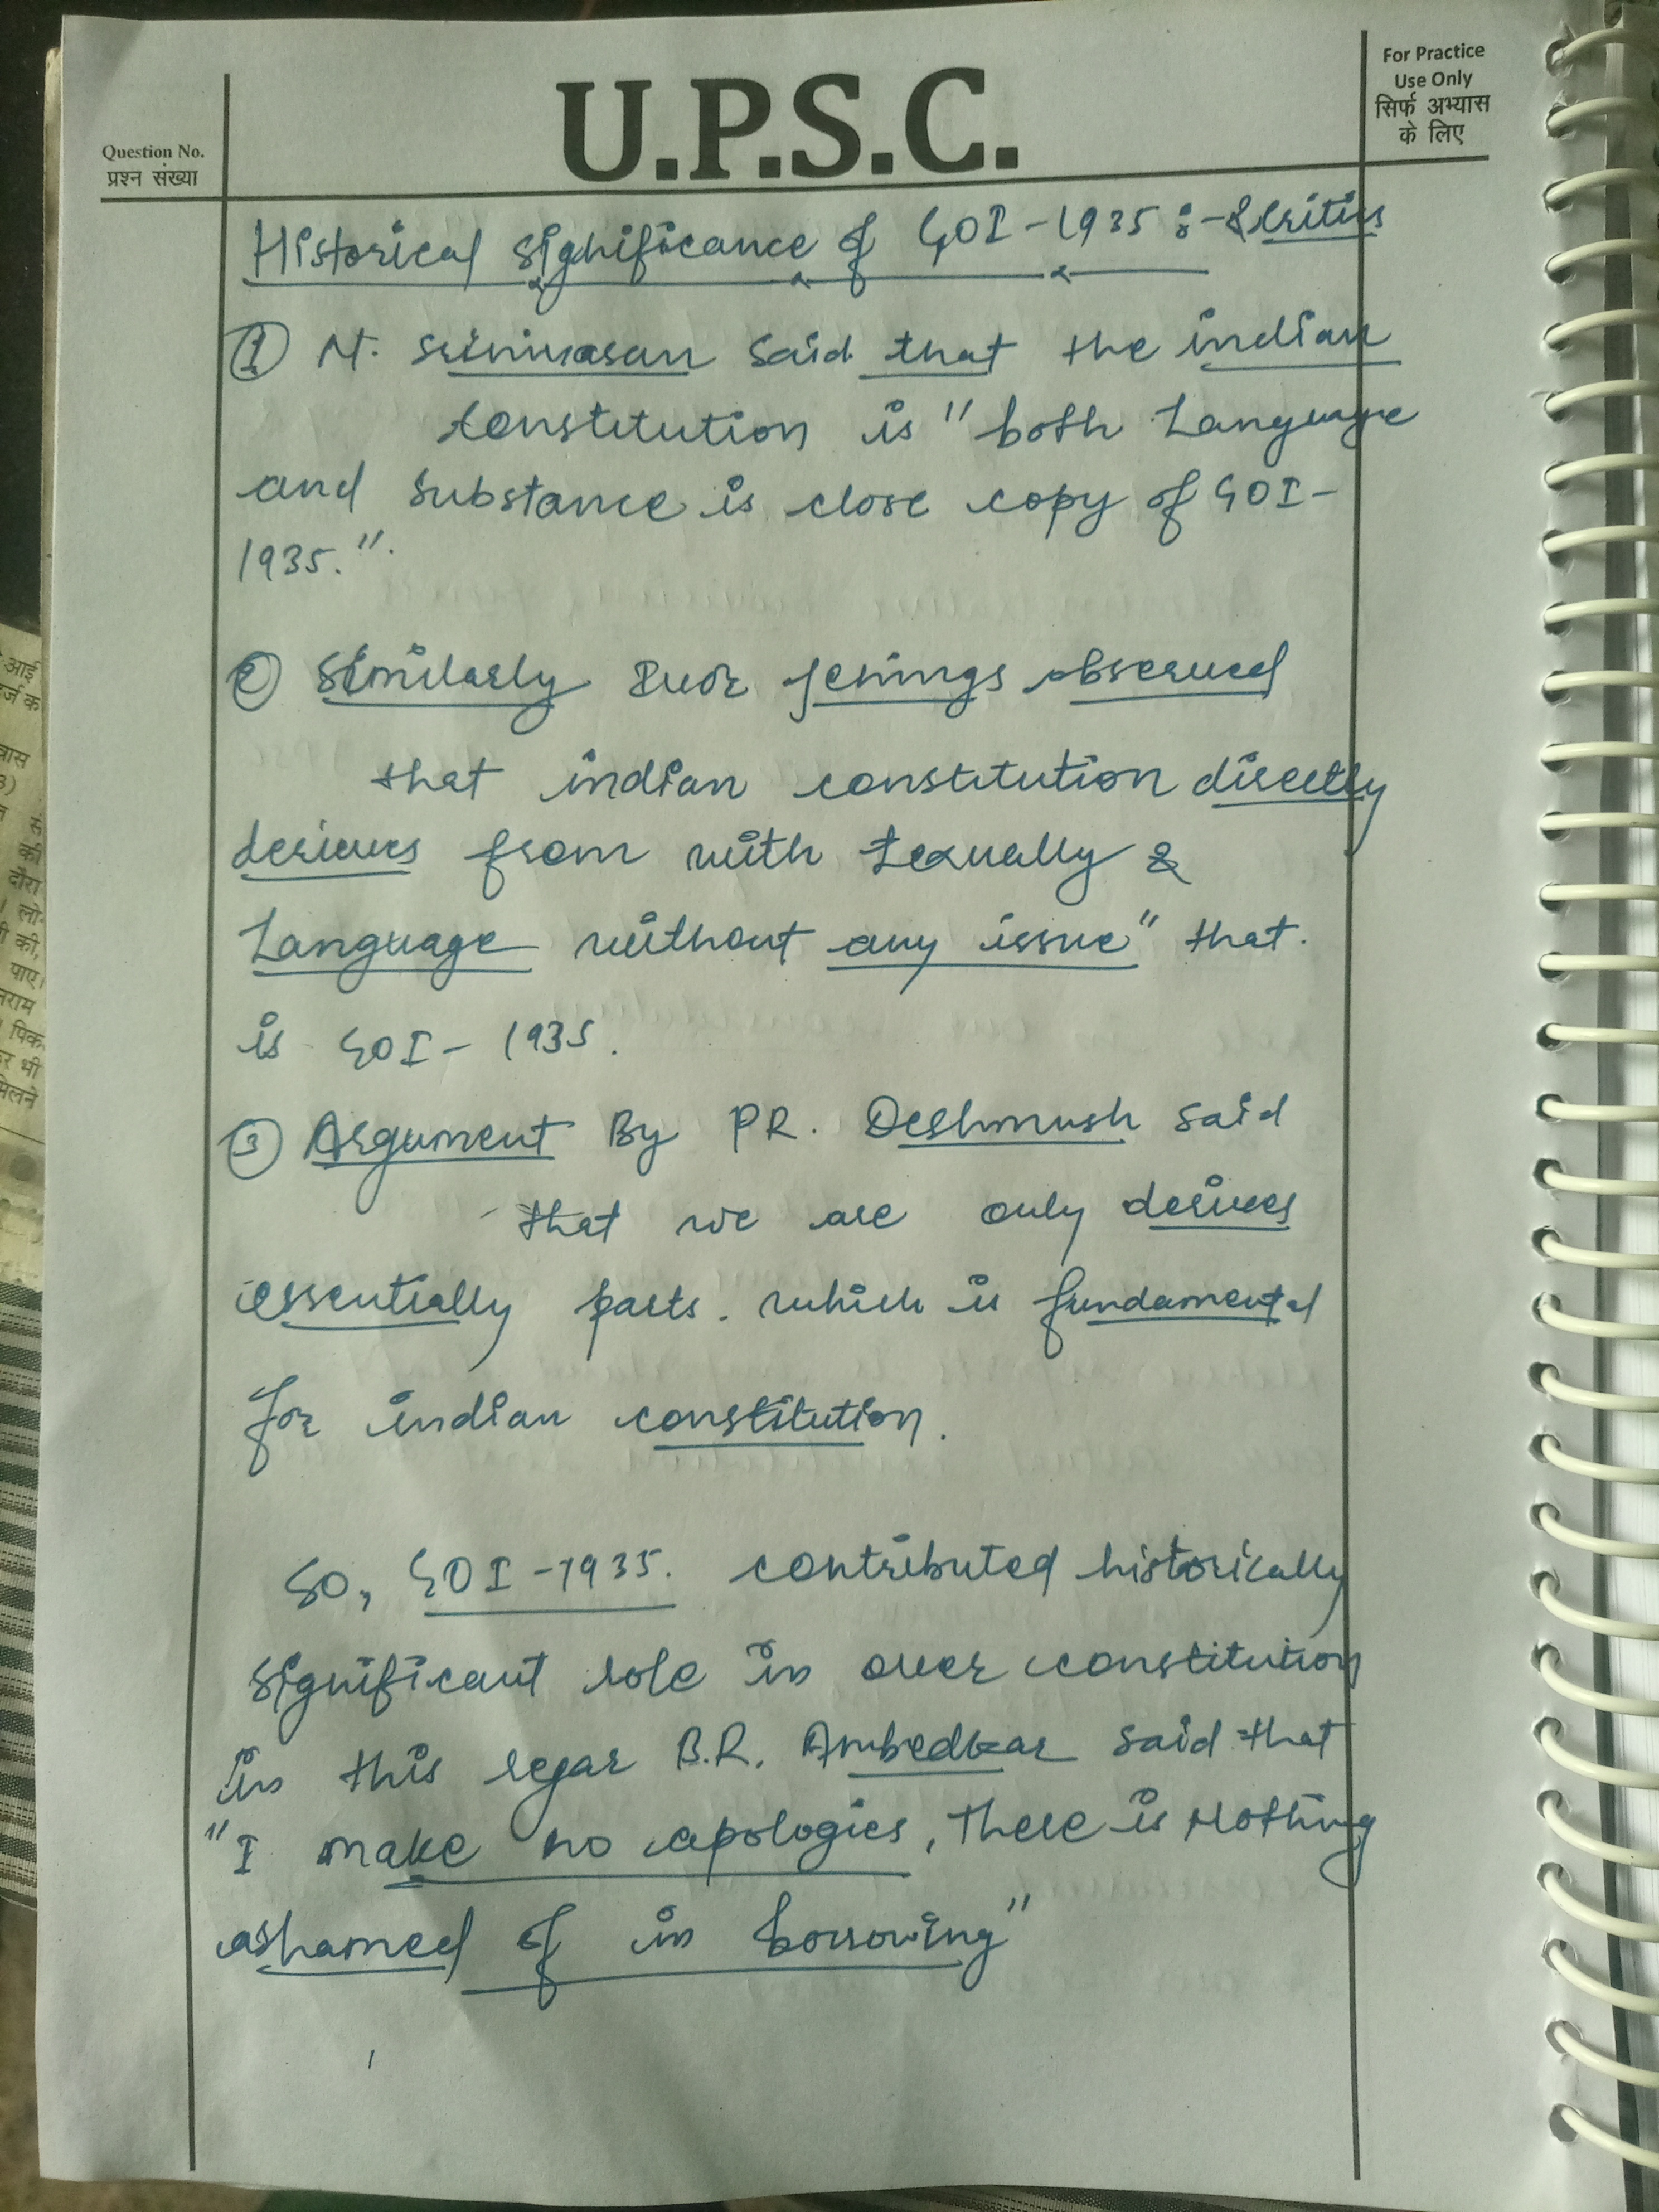 U.P.S.C.
For Practice
Use Only
सिर्फ अभ्यास
के लिए
Question No.
प्रश्न संख्या
Historical significance of GOI-1935 :- & critics
① N. Srinivasan said that the indian
constitution is "both Language
and substance is close copy of GOI-
1935.".
② Similarly Ivor Jenings observed
that indian constitution directly
derives from with texually &
Language without any issue" that.
is GOI- 1935.
③ Argument By PR. Deshmush said
that we are only derives
essentially parts. which is fundamental
for indian constitution.
So, GOI-1935. contributed historically
significant role in over constitution
in this regar B.R. Ambedkar said that
"I make no apologies, there is Nothing
ashamed of in borrowing"
आई
र्ज क
त्रास
3)
की
दौरा
लो-
की,
पाए।
नराम
पिक
र भी
मिलने